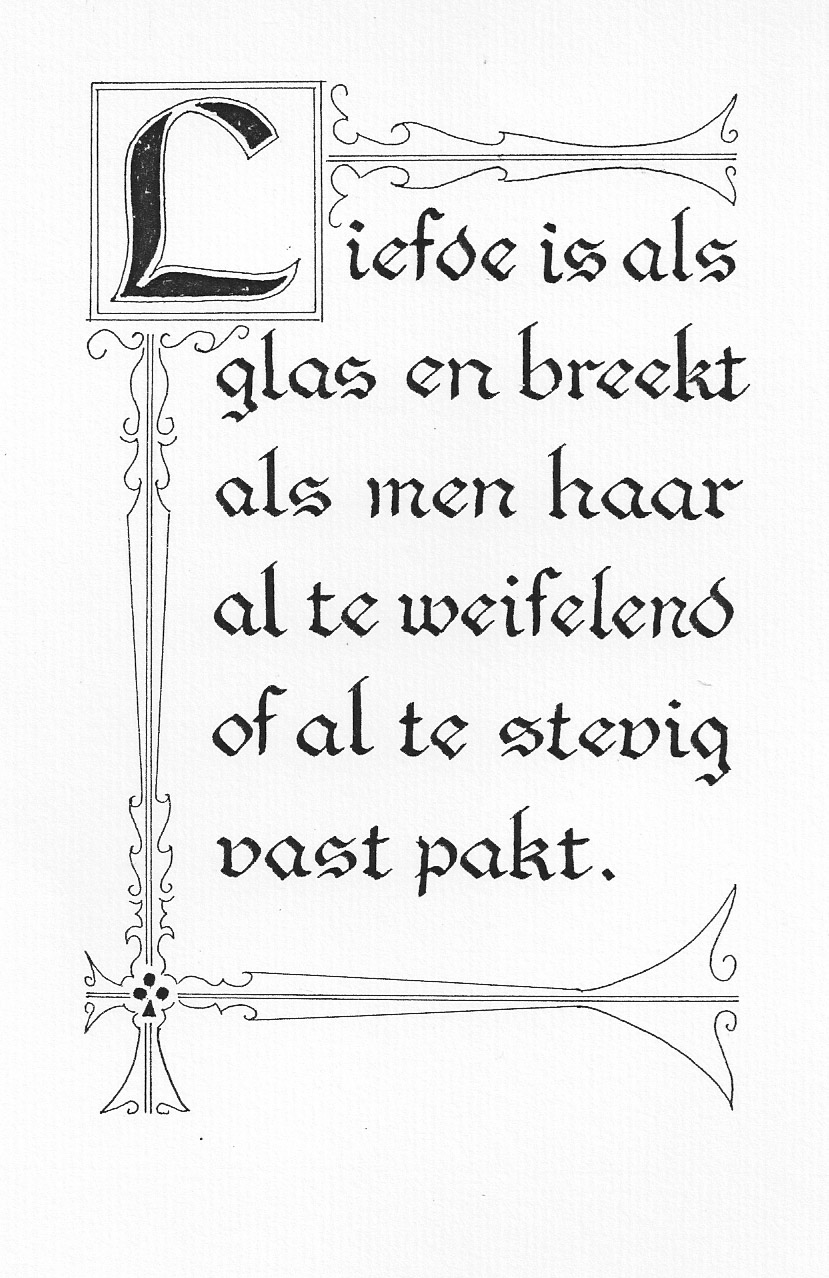 Liefde is als
glas en breekt
als men haar
al te weifelend
of al te stevig
vast pakt.